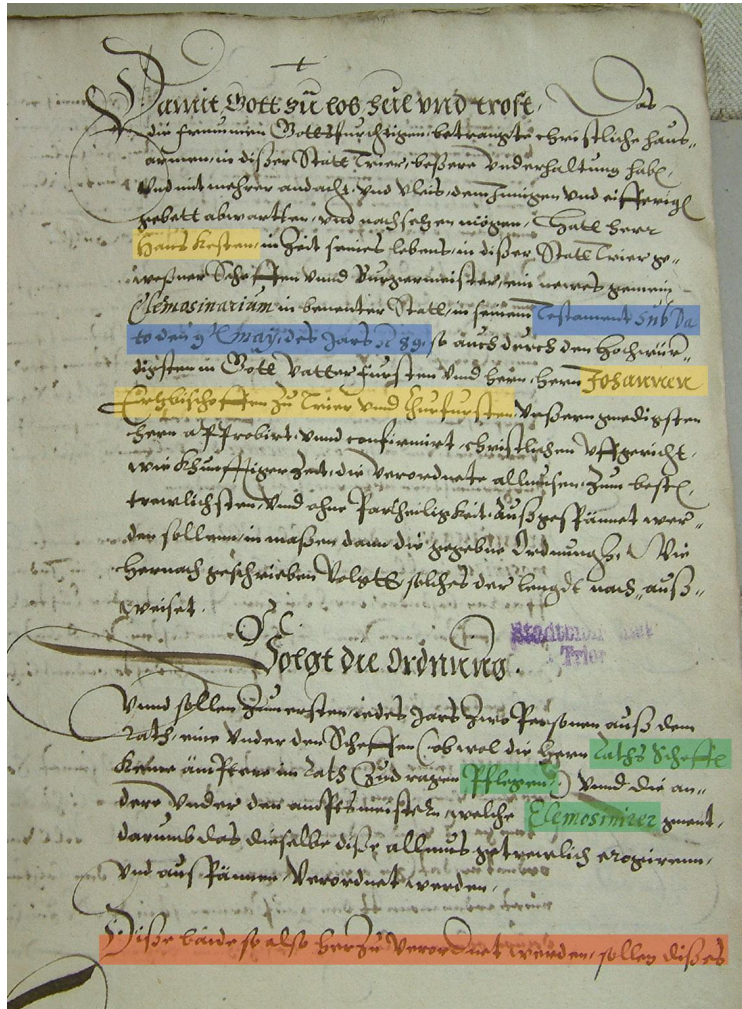 Damit Gott zu lob heil vnd trost. Das
die frummen Gottsfurchtigen betrangte christliche haus„
armen, in dißer Statt Trier, beßere vnderhaltung habe,
vnd mit mehrer andacht, vnd vleis, dem Innigen vnd eifferigē
gebett abwartten, vnd nachsetzen mögen, Hatt herr
Hans Kesten, in Zeit seines lebens, in dißer Statt Trier ge„
weßner Scheffen vnnd Burgermeister, ein newes gemein
Elemosinarium in benenter Statt, in seinem Testament sub Da
to den 9t May, des Jars 89, so auch durch den hochwür„
digsten in Gott Vatter Fursten vnd hern, hern Johannen
Ertzbischoffen zu Trier vnd Churfursten vnßern gnedigsten
hern approbirt, vnnd confirmirt, christlichen vffgericht,
wie khunfftiger Zeit, die verordnete allmusen, zum beste,
trewlichsten, vnd ohne Partheiligkeit, außgespännet wer„
den sollenn, in maßen dann die gegebne Ordnung Wie
hernach geschrieben volgtt, solches der lengdt nach, auß„
weiset.
Stadtbibliothek
Trier
Folgt die Ordnung.
Vnnd sollen Zum ersten, iedes Jars zwo Personen auß dem
Rath, eine vnder den Scheffen (ob wol die hern Raths Scheffē
keine ämpttere im Rath Zud ragen Pflegen) vnnd die an„
dere vnder den amptsmeistern, welche Elemosinirer gnent,
darumb das dieselbe diße allmus getrewlich erogirenn,
vnd ausspännen, verordnet werden,
Diße baide so also herzu verordnet werden, sollen dißes